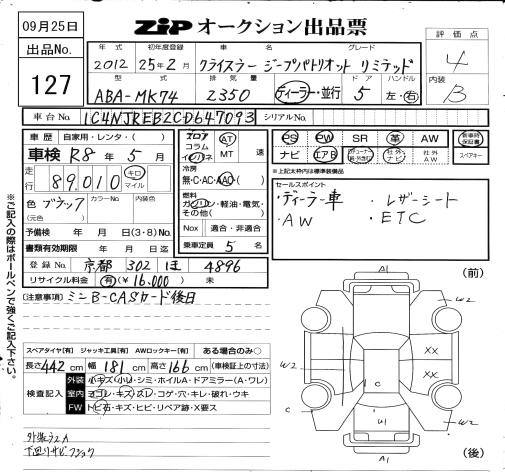 09月25日
ZIP オークション出品票
出品No.
127
年式 初年度登録 車名 グレード
2012 25年2月 クライスラー ジープパトリオット リミテッド
型式 排気量 ドア ハンドル
ABA-MK74 2350 ディーラー・並行 5 左・右
評価点
4
内装
B
車台No. 1C4NJREB2CD647093 シリアルNo.
車歴 自家用・レンタ・( )
車検 R8年 5月
走行 89,010 キロ マイル
色 ブラック カラーNo. 内装色
(元色)
予備検 年 月 日(3・8)No.
書類有効期限 年 月 日迄
登録No. 京都 302 ほ 4896
リサイクル料金 有(¥16,000) 未
フロア AT
コラム
インパネ MT 速
冷房
無・C・AC・AAC
燃料
ガソリン・軽油・電気・
その他( )
Nox 適合・非適合
乗車定員 5 名
PS PW SR 革 AW 新車時保証書
ナビ エアB 社外ナビ 社外AW スペアキー
※上記太枠内は標準装備品
セールスポイント
・ディーラー車 ・レザーシート
・AW ・ETC
※ご記入の際はボールペンで強くご記入下さい。
[注意事項] ミニB-CASカード後日
スペアタイヤ[有] ジャッキ工具[有] AWロックキー[有] ある場合のみ○
長さ 442 cm 幅 181 cm 高さ 166 cm (車検証上の寸法)
検査記入
外装 小キズ・小U・シミ・ホイルA・ドアミラー(A・ワレ)
室内 ヨゴレ・キズ・スレ・コゲ・穴・キレ・破れ・ウキ
FW トビ石・キズ・ヒビ・リペア跡・X要ス
外装ラスA
下廻りサビフショク
(前)
A1
W2
W2
XX
XX
C
C
W2
U1
A1
(後)